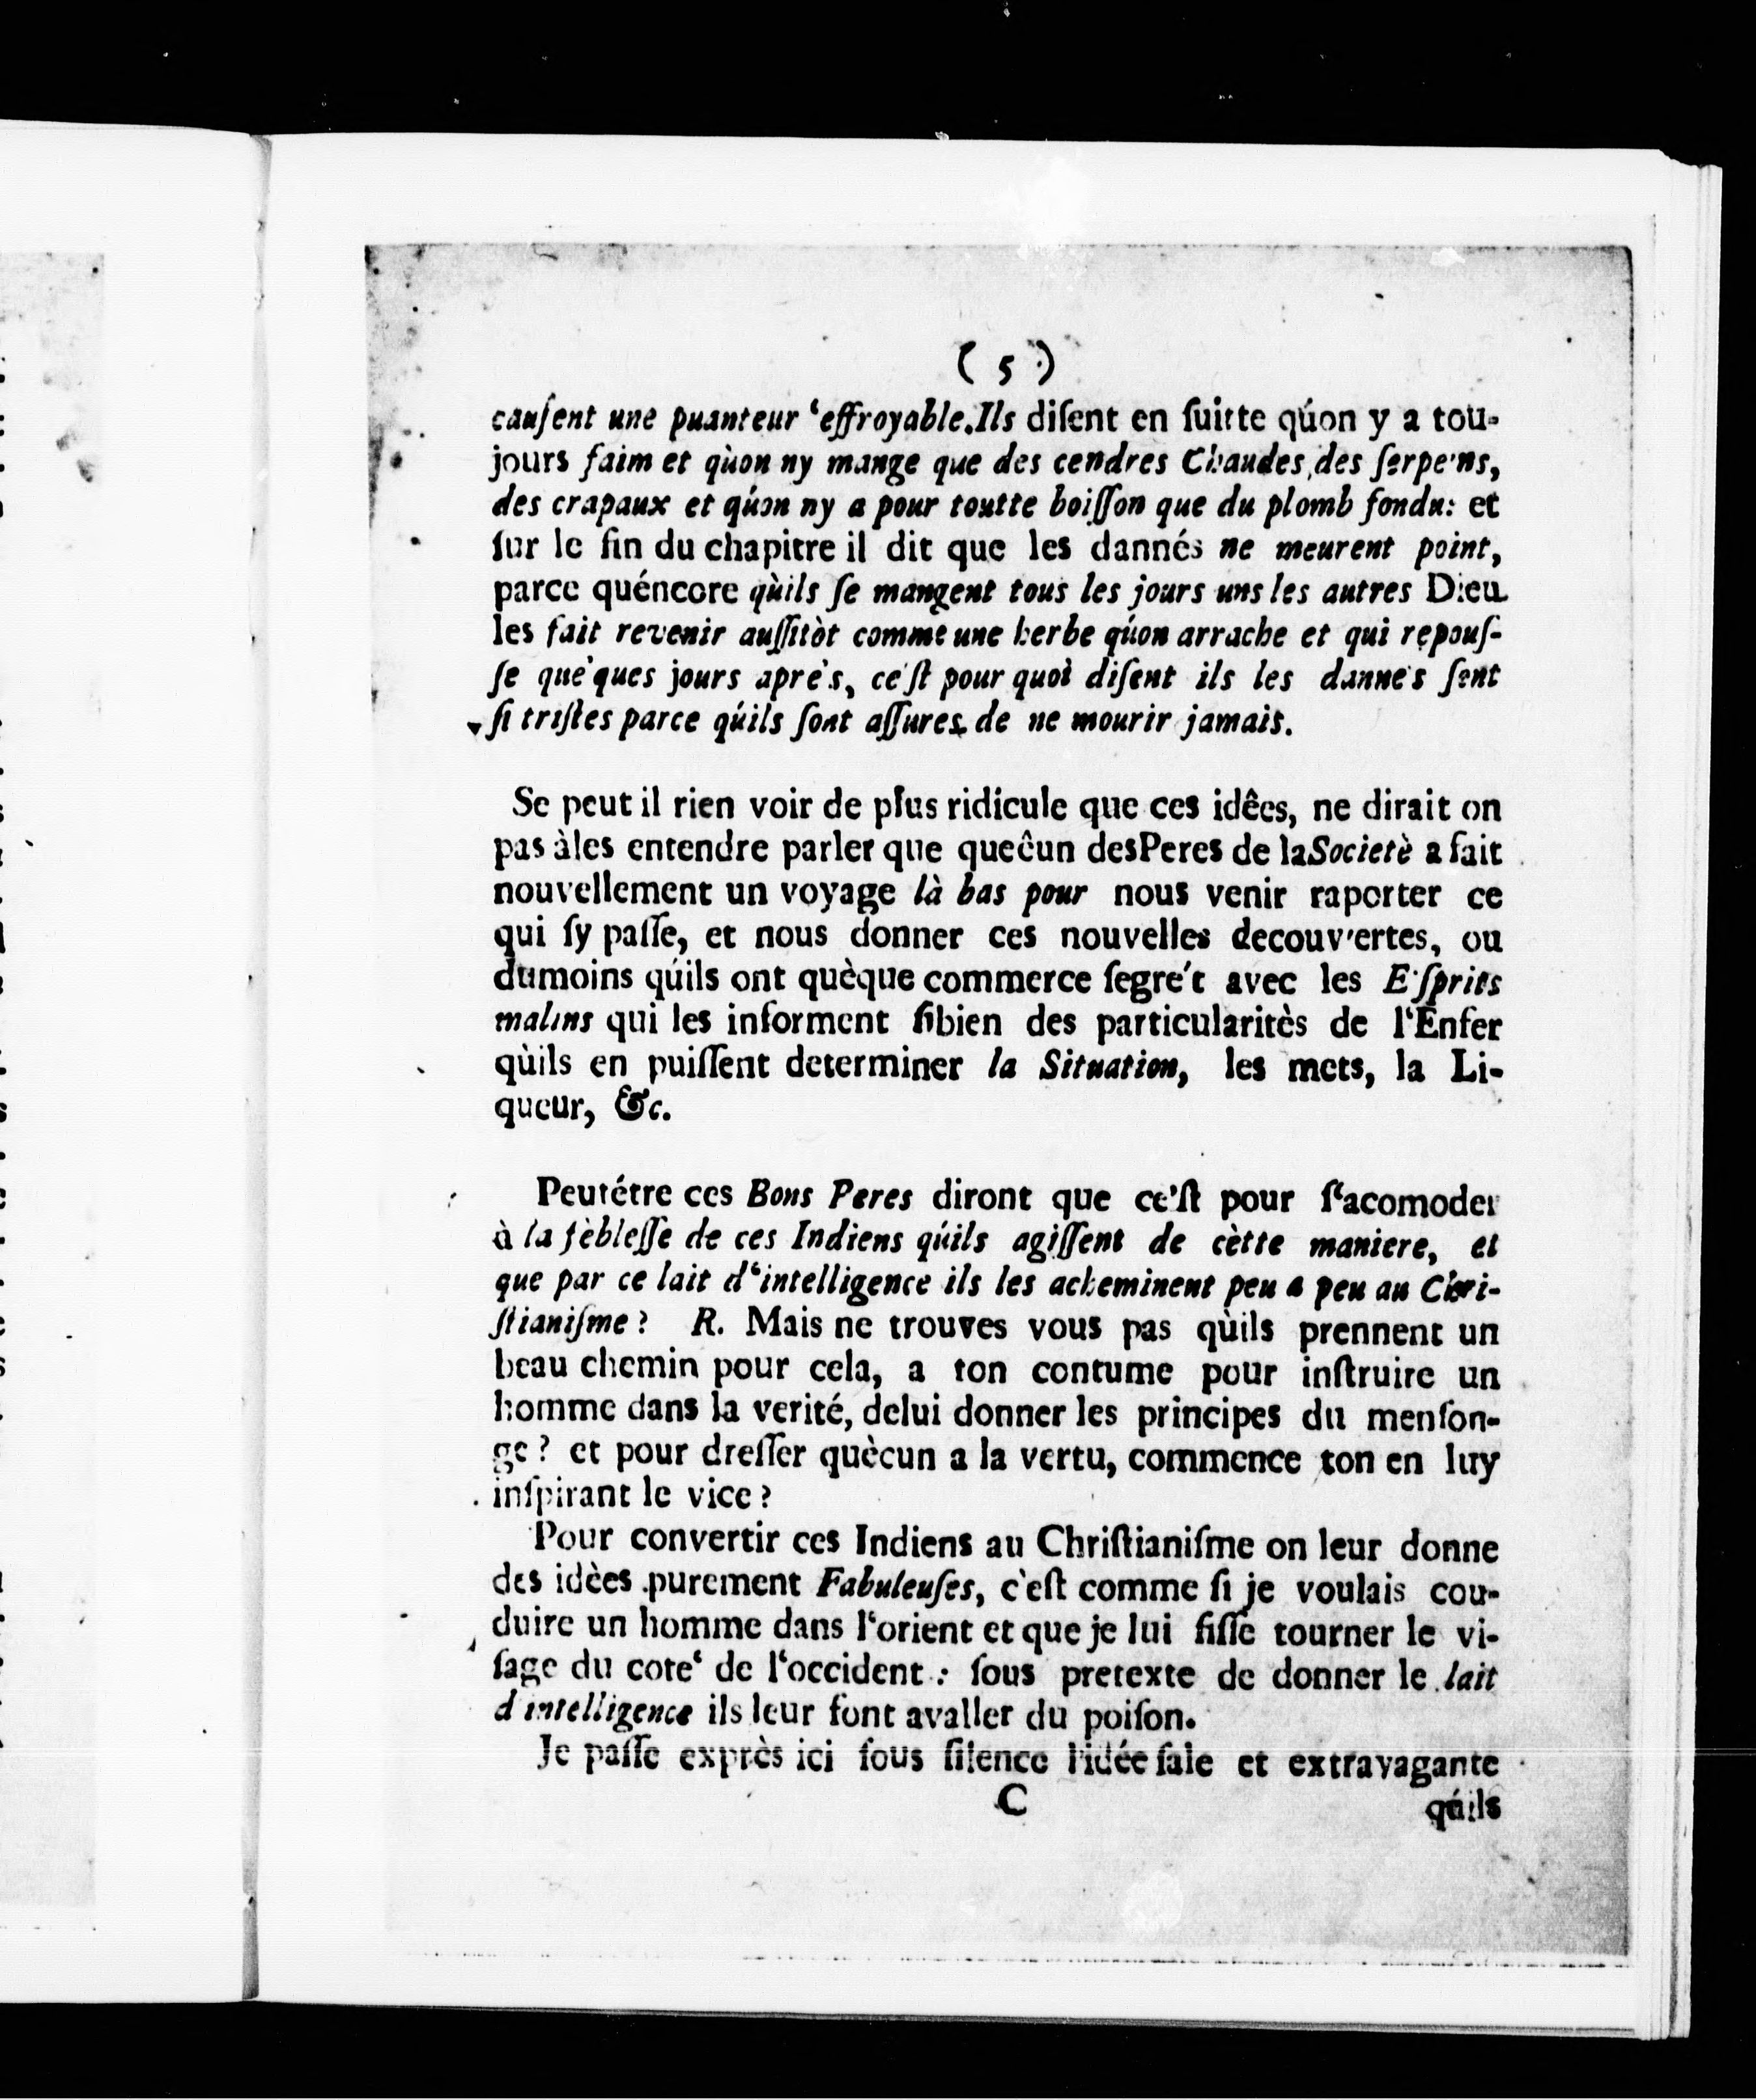 ( 5 )
cauſent une puanteur ‘effroyable.Ils diſent en ſuitte qúon y a tou-
jours faim et qùon ny mange que des cendres Chaudes,des ſerpens,
des crapaux et qúon ny a pour toutte boiſſon que du plomb fondu: et
ſur le fin du chapitre il dit que les dannés ne meurent point,
parce quéncore qùils ſe mangent tous les jours uns les autres Dieu
les fait revenir auſſitòt comme une herbe qúon arrache et qui repouſ-
ſe què'ques jours apre's, ce'ſt pour quoi diſent ils les danne's ſont
ſi triſtes parce qúils ſont aſſures de ne mourir jamais.
Se peut il rien voir de plus ridicule que ces idêes, ne dirait on
pas àles entendre parler que quecûn desPeres de laSocietè a fait
nouvellement un voyage là bas pour nous venir raporter ce
qui ſy paſſe, et nous donner ces nouvelles decouv'ertes, ou
dumoins qúils ont quèque commerce ſegre't avec les E'ſprits
malins qui les informent ſibien des particularitès de l‘Enfer
qùils en puiſſent determiner la Situation, les mets, la Li-
queur, &c.
Peutétre ces Bons Peres diront que ce'ſt pour ſ‘acomoder
à la fèbleſſe de ces Indiens qúils agiſſent de cètte maniere, et
que par ce lait d‘intelligence ils les acheminent peu a peu au Chri-
ſtianiſme? R. Mais ne trouves vous pas qùils prennent un
beau chemin pour cela, a ton contume pour inſtruire un
homme dans la verité, delui donner les principes du menſon-
ge? et pour dreſſer quècun a la vertu, commence ton en luy
inſpirant le vice?
Pour convertir ces Indiens au Chriſtianiſme on leur donne
des idèes purement Fabuleuſes, c'eſt comme ſi je voulais cou-
duire un homme dans l‘orient et que je lui fiſſe tourner le vi-
ſage du cote‘ de l‘occident: ſous pretexte de donner le lait
d'intelligence ils leur font avaller du poiſon.
Je paſſe exprès ici ſous ſilence l'idée ſale et extravagante
C
qúils